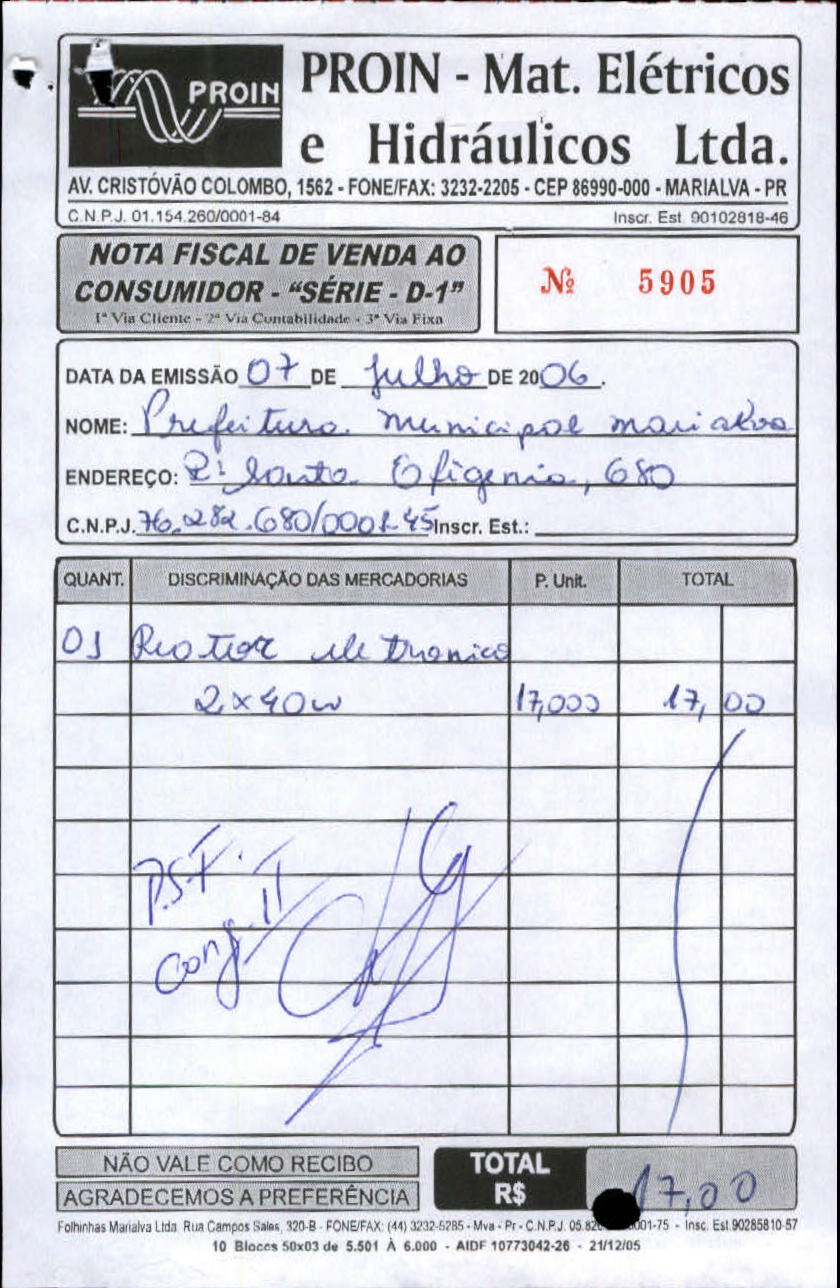 PROIN
PROIN - Mat. Elétricos
e Hidráulicos Ltda.
AV. CRISTÓVÃO COLOMBO, 1562 - FONE/FAX: 3232-2205 - CEP 86990-000 - MARIALVA - PR
C.N.P.J. 01.154.260/0001-84 Inscr. Est. 90102818-46
NOTA FISCAL DE VENDA AO
CONSUMIDOR - “SÉRIE - D-1”
1ª Via Cliente - 2ª Via Contabilidade - 3ª Via Fixa
Nº 5905
DATA DA EMISSÃO 07 DE Julho DE 2006.
NOME: Prefeitura municipal marialva
ENDEREÇO: R: Santa Efigenia, 680
C.N.P.J. 76.282.680/0001-45 Inscr. Est.:
QUANT. DISCRIMINAÇÃO DAS MERCADORIAS P. Unit. TOTAL
01 Reator eletronico
2x40w 17,000 17,00
P.S.F.
Conj. II
NÃO VALE COMO RECIBO
AGRADECEMOS A PREFERÊNCIA
TOTAL
R$ 17,00
Folhinhas Marialva Ltda. Rua Campos Sales, 320-B - FONE/FAX: (44) 3232-5285 - Mva - Pr - C.N.P.J. 05.82 001-75 - Insc. Est.90285810-57
10 Blocos 50x03 de 5.501 À 6.000 - AIDF 10773042-26 - 21/12/05